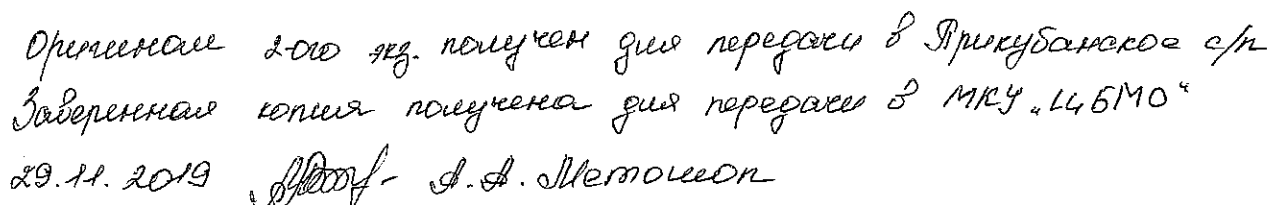 Оригинал 2-ого экз. получен для передачи в Прикубанское с/п
Заверенная копия получена для передачи в МКУ „ЦБМО“
29.11.2019 А.А. Меташоп